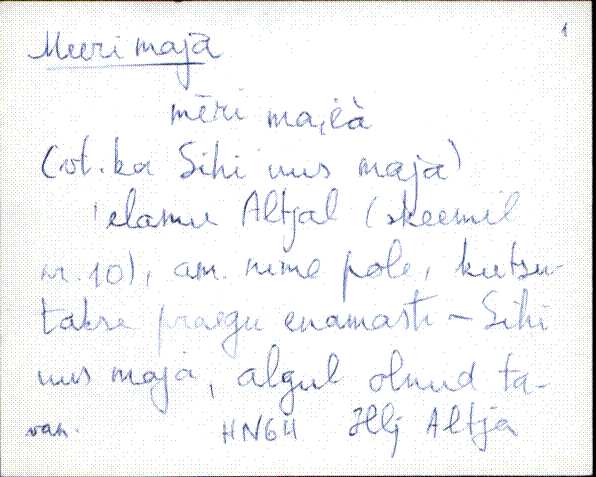 1
Meeri maja
mēri mai̯l̀à
(vt. ka Sihi uus maja)
elamu Altjal (skeemil
nr. 10), am. nime pole, kutsu-
takse praegu enamasti – Sihi
uus maja, algul olnud ta-
van. HN64 Hlj Altja